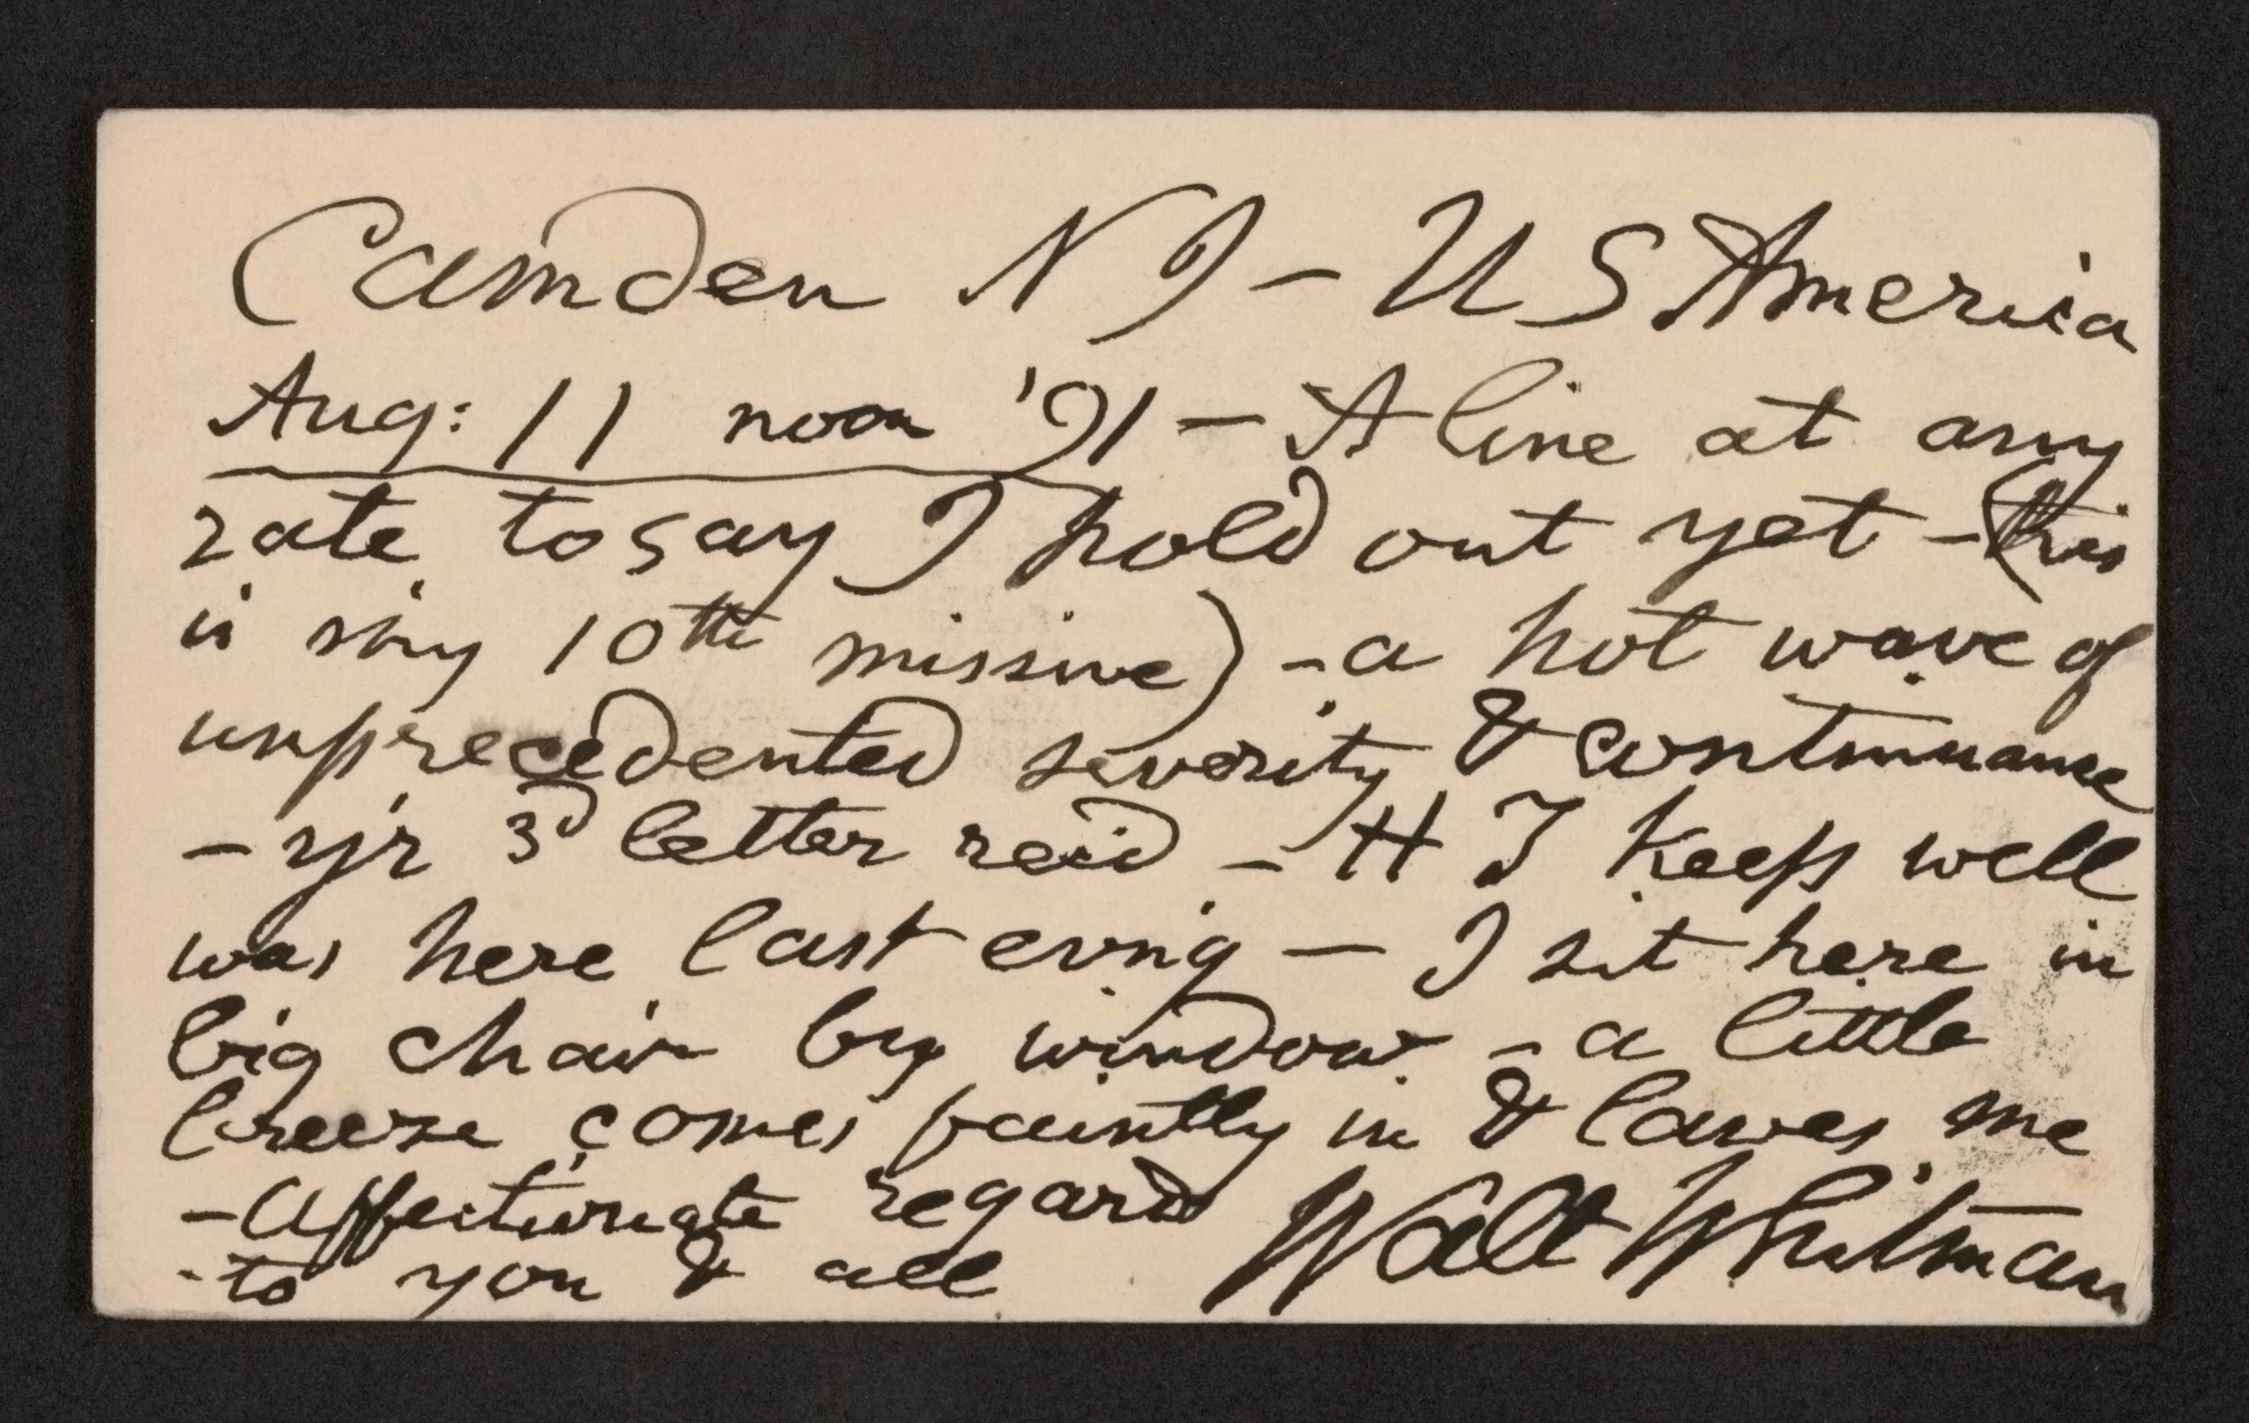 Camden N J – U S America
Aug: 11 noon '91 – A line at any
rate to say I hold out yet – (this
is my 10th missive) – a hot wave of
unprecedented severity & continuance
– y'r 3d letter rec'd – H T keeps well
was here last evn'g – I sit here in
big chair by window – a little
breeze comes faintly in & laves me
– Affectionate regards
– to you & all Walt Whitman